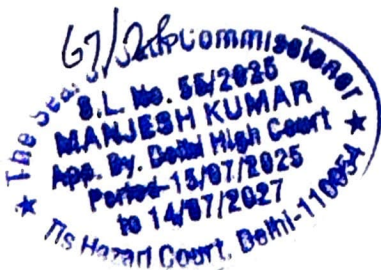 The Seal Oath Commissioner
S.L. No. 55/2025
MANJESH KUMAR
App. By. Delhi High Court
Period-15/07/2025
to 14/07/2027
Tis Hazari Court, Delhi-110054